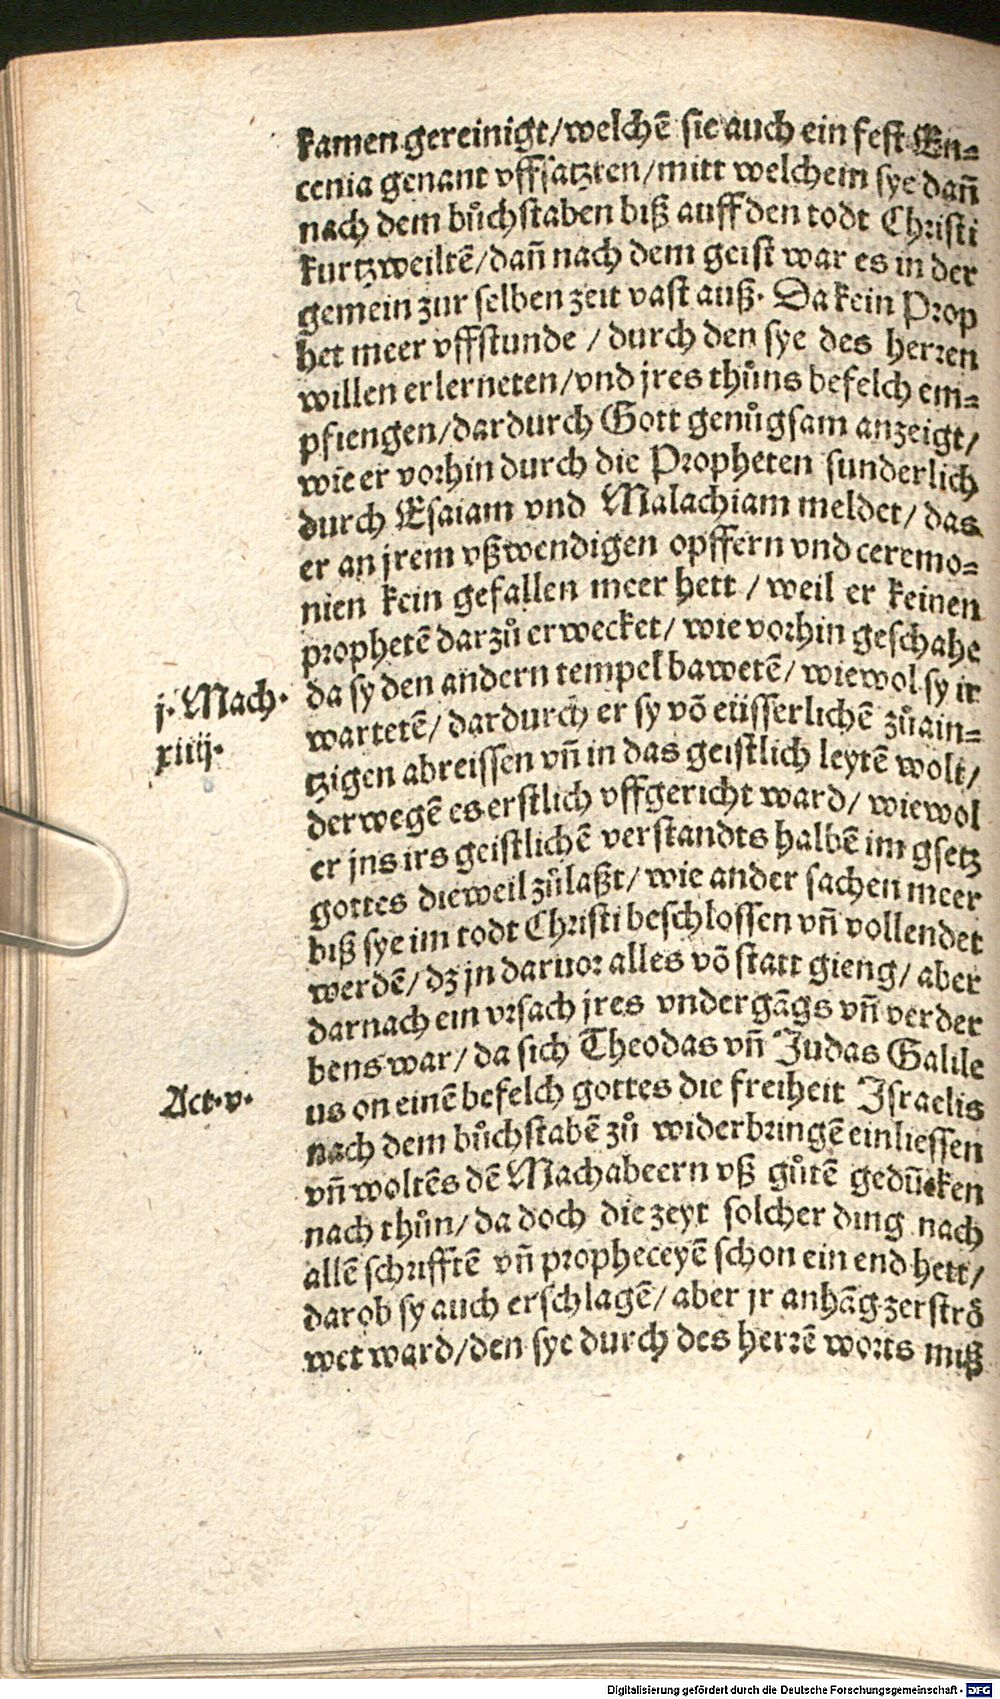 kamen gereinigt/welchẽ sie auch ein fest En=
cenia genant vffsatzten/mitt welchem sye dañ
nach dem bůchstaben biß auff den todt Christi
kurtzweiltẽ/dañ nach dem geist war es in der
gemein zur selben zeit vast auß. Da kein Prop
het meer vffstunde / durch den sye des herren
willen erlerneten/vnd jres thůns befelch em=
pfiengen/dardurch Gott genůgsam anzeigt/
wie er vorhin durch die Propheten sunderlich
durch Esaiam vnd Malachiam meldet/ das
er an jrem vßwendigen opffern vnd ceremo=
nien kein gefallen meer hett / weil er keinen
prophetẽ darzů erwecket/ wie vorhin geschahe
da sy den andern tempel bawetẽ/ wiewol sy ir
j. Mach.
xiiij.
wartetẽ/ dardurch er sy võ eüsserlichẽ zůain=
tzigen abreissen vñ in das geistlich leytẽ wolt/
derwegẽ es erstlich vffgericht ward/ wiewol
er jns irs geistlichẽ verstandts halbẽ im gsetz
gottes dieweil zůlaßt/ wie ander sachen meer
biß sye im todt Christi beschlossen vñ vollendet
werdẽ/ dz jn daruor alles võ statt gieng/ aber
darnach ein vrsach jres vndergãgs vñ verder
bens war/ da sich Theodas vñ Judas Galile
Act. v.
us on einẽ befelch gottes die freiheit Israelis
nach dem bůchstabẽ zů widerbringẽ einliessen
vñ woltẽs dẽ Machabeern vß gůtẽ gedũcken
nach thůn/ da doch die zeyt solcher ding nach
allẽ schrifftẽ vñ propheceyẽ schon ein end hett/
darob sy auch erschlagẽ/ aber jr anhãg zerströ
wet ward/den sye durch des herrẽ worts miß
Digitalisierung gefördert durch die Deutsche Forschungsgemeinschaft - DFG